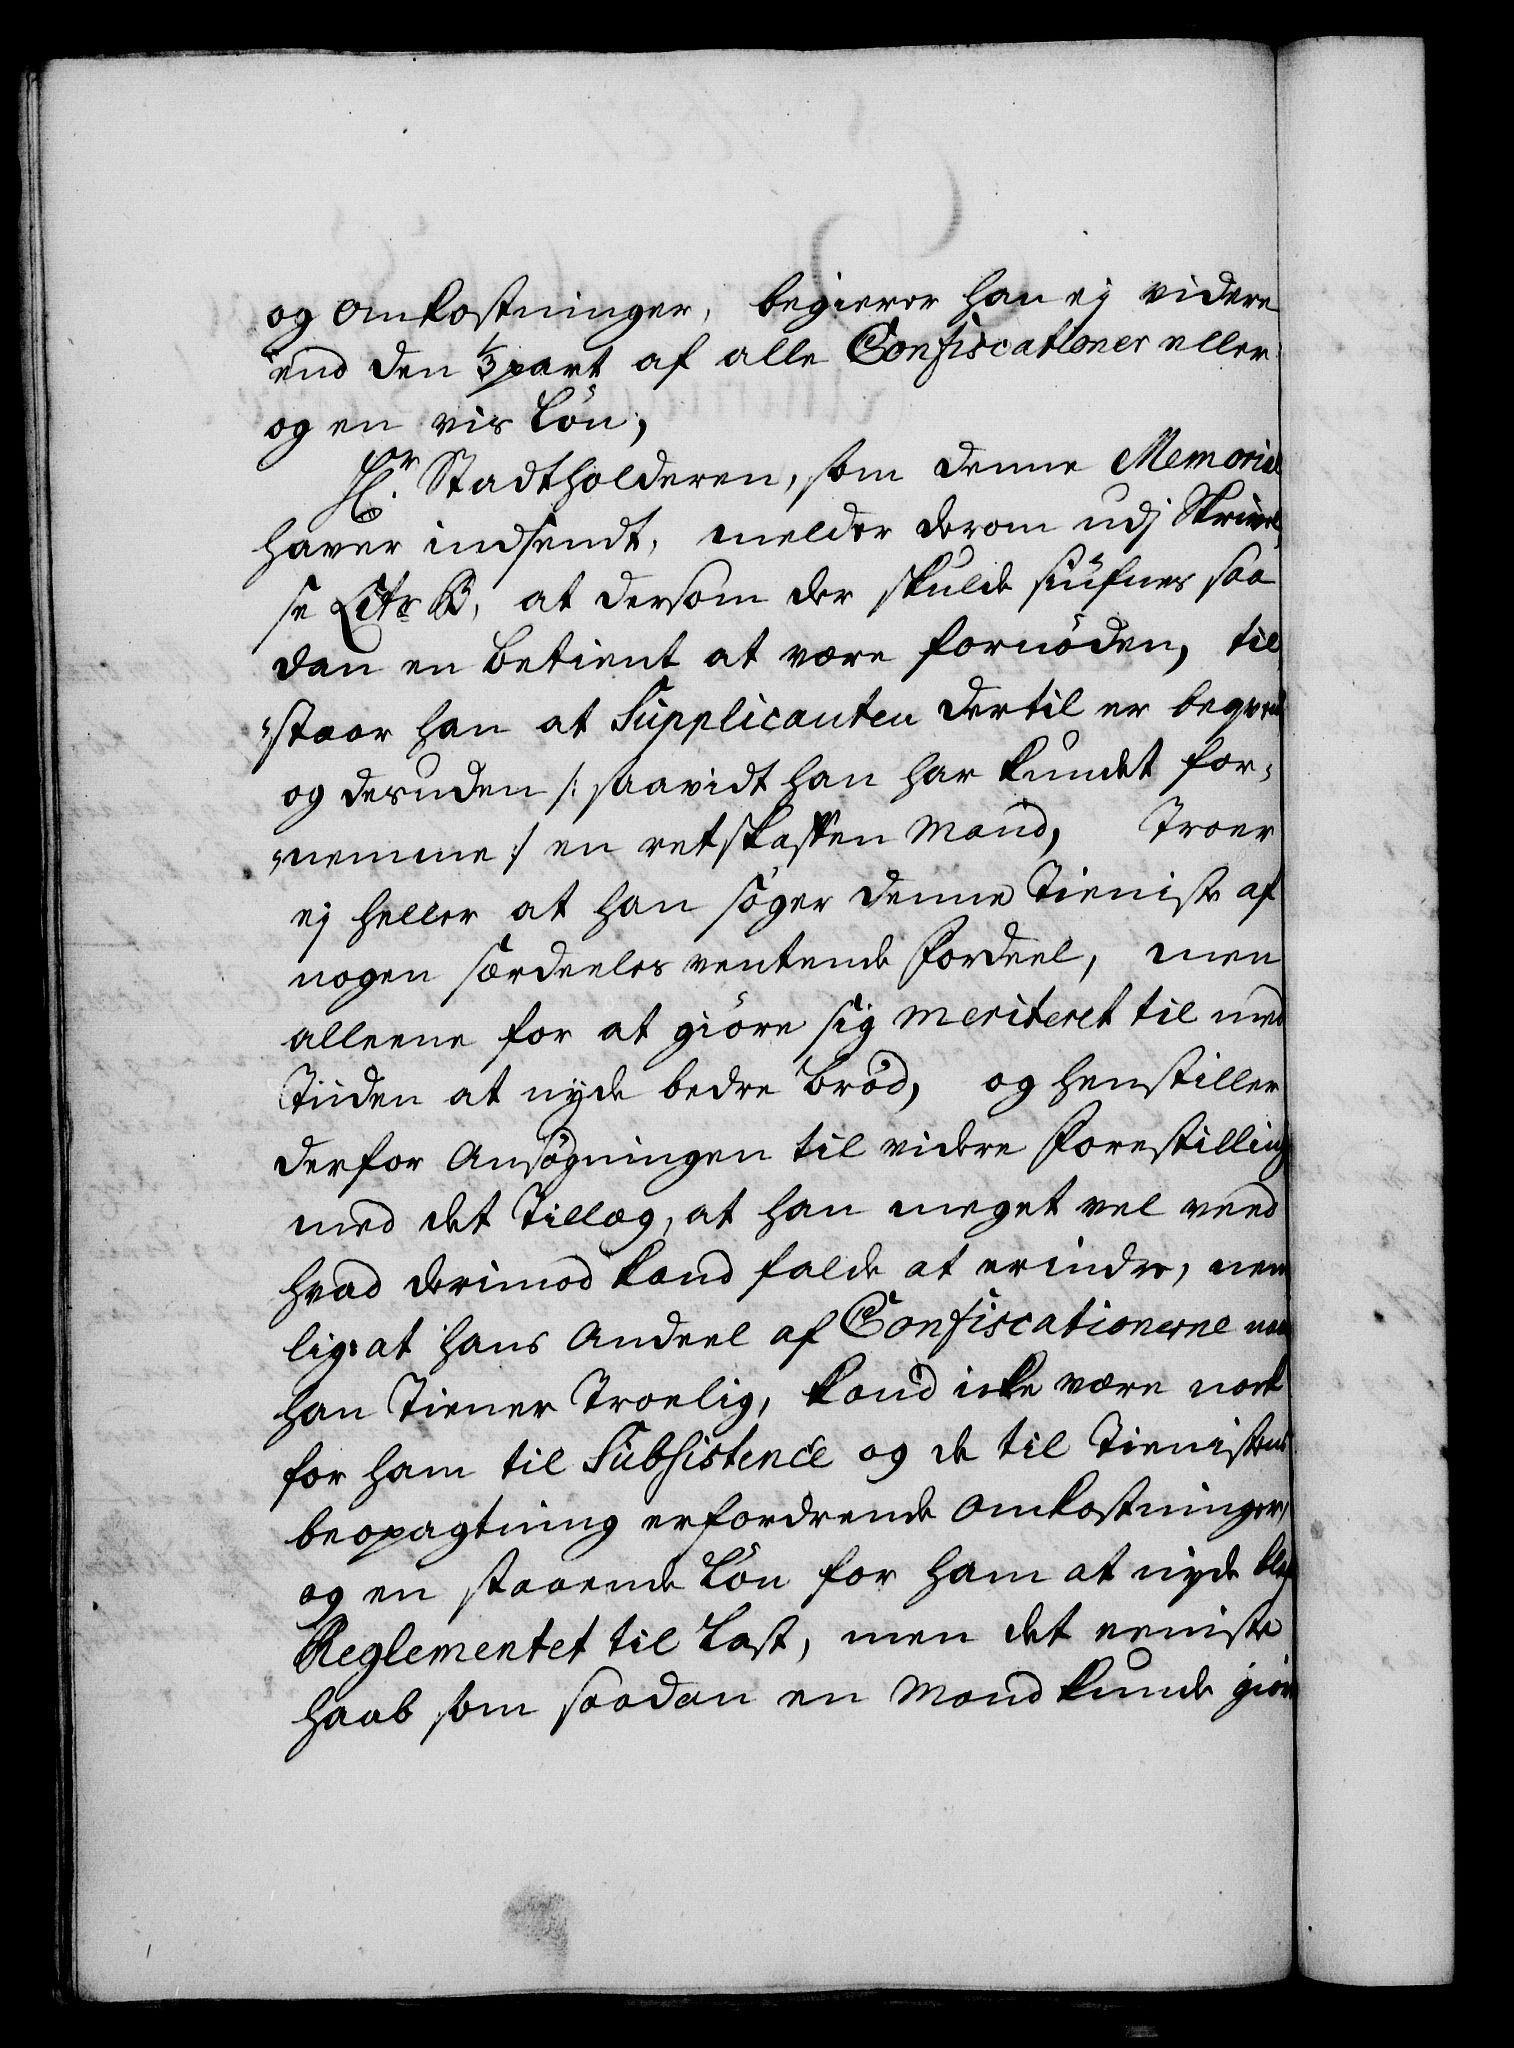 og Omkostninger, begierer han ej videre
end den 1/3 part af alle Confiscationer eller
og en vis Løn,
Hr. Stadtholderen, som denne Memorial
haver indsendt, melder derom udj Skrivel,
se Litr B, at dersom der skulde siufnes saa
dan en Betient at være fornøden, til
staar han at Supplicanten dertil er beqvem
og desuden /: saavidt han har kundet for-
nemme :/ en retskaffen Mand, Troer
ej heller at han søger denne Tieniste af
nogen særdeeles ventende Fordeel, men
alleene for at giøre sig meriteret til med
Tiiden at nyde bedre Brød, og henstiller
derfor Ansøgningen til videre Forestilling
med det Tillæg, at han meget vel veed
hvad derimod kand falde at erindre, nem
lig: at hans Andeel af Confiscationerne naar
han Tiener Troelig, kand icke være nock
for ham til Subsistence og de til Tienistens
beopagtning erfordrende Omkostninger,
og en staaende Løn for ham at nyde blef
Reglementet til Last, men det eeniste
Haab som saadan en Mand kunde giøre